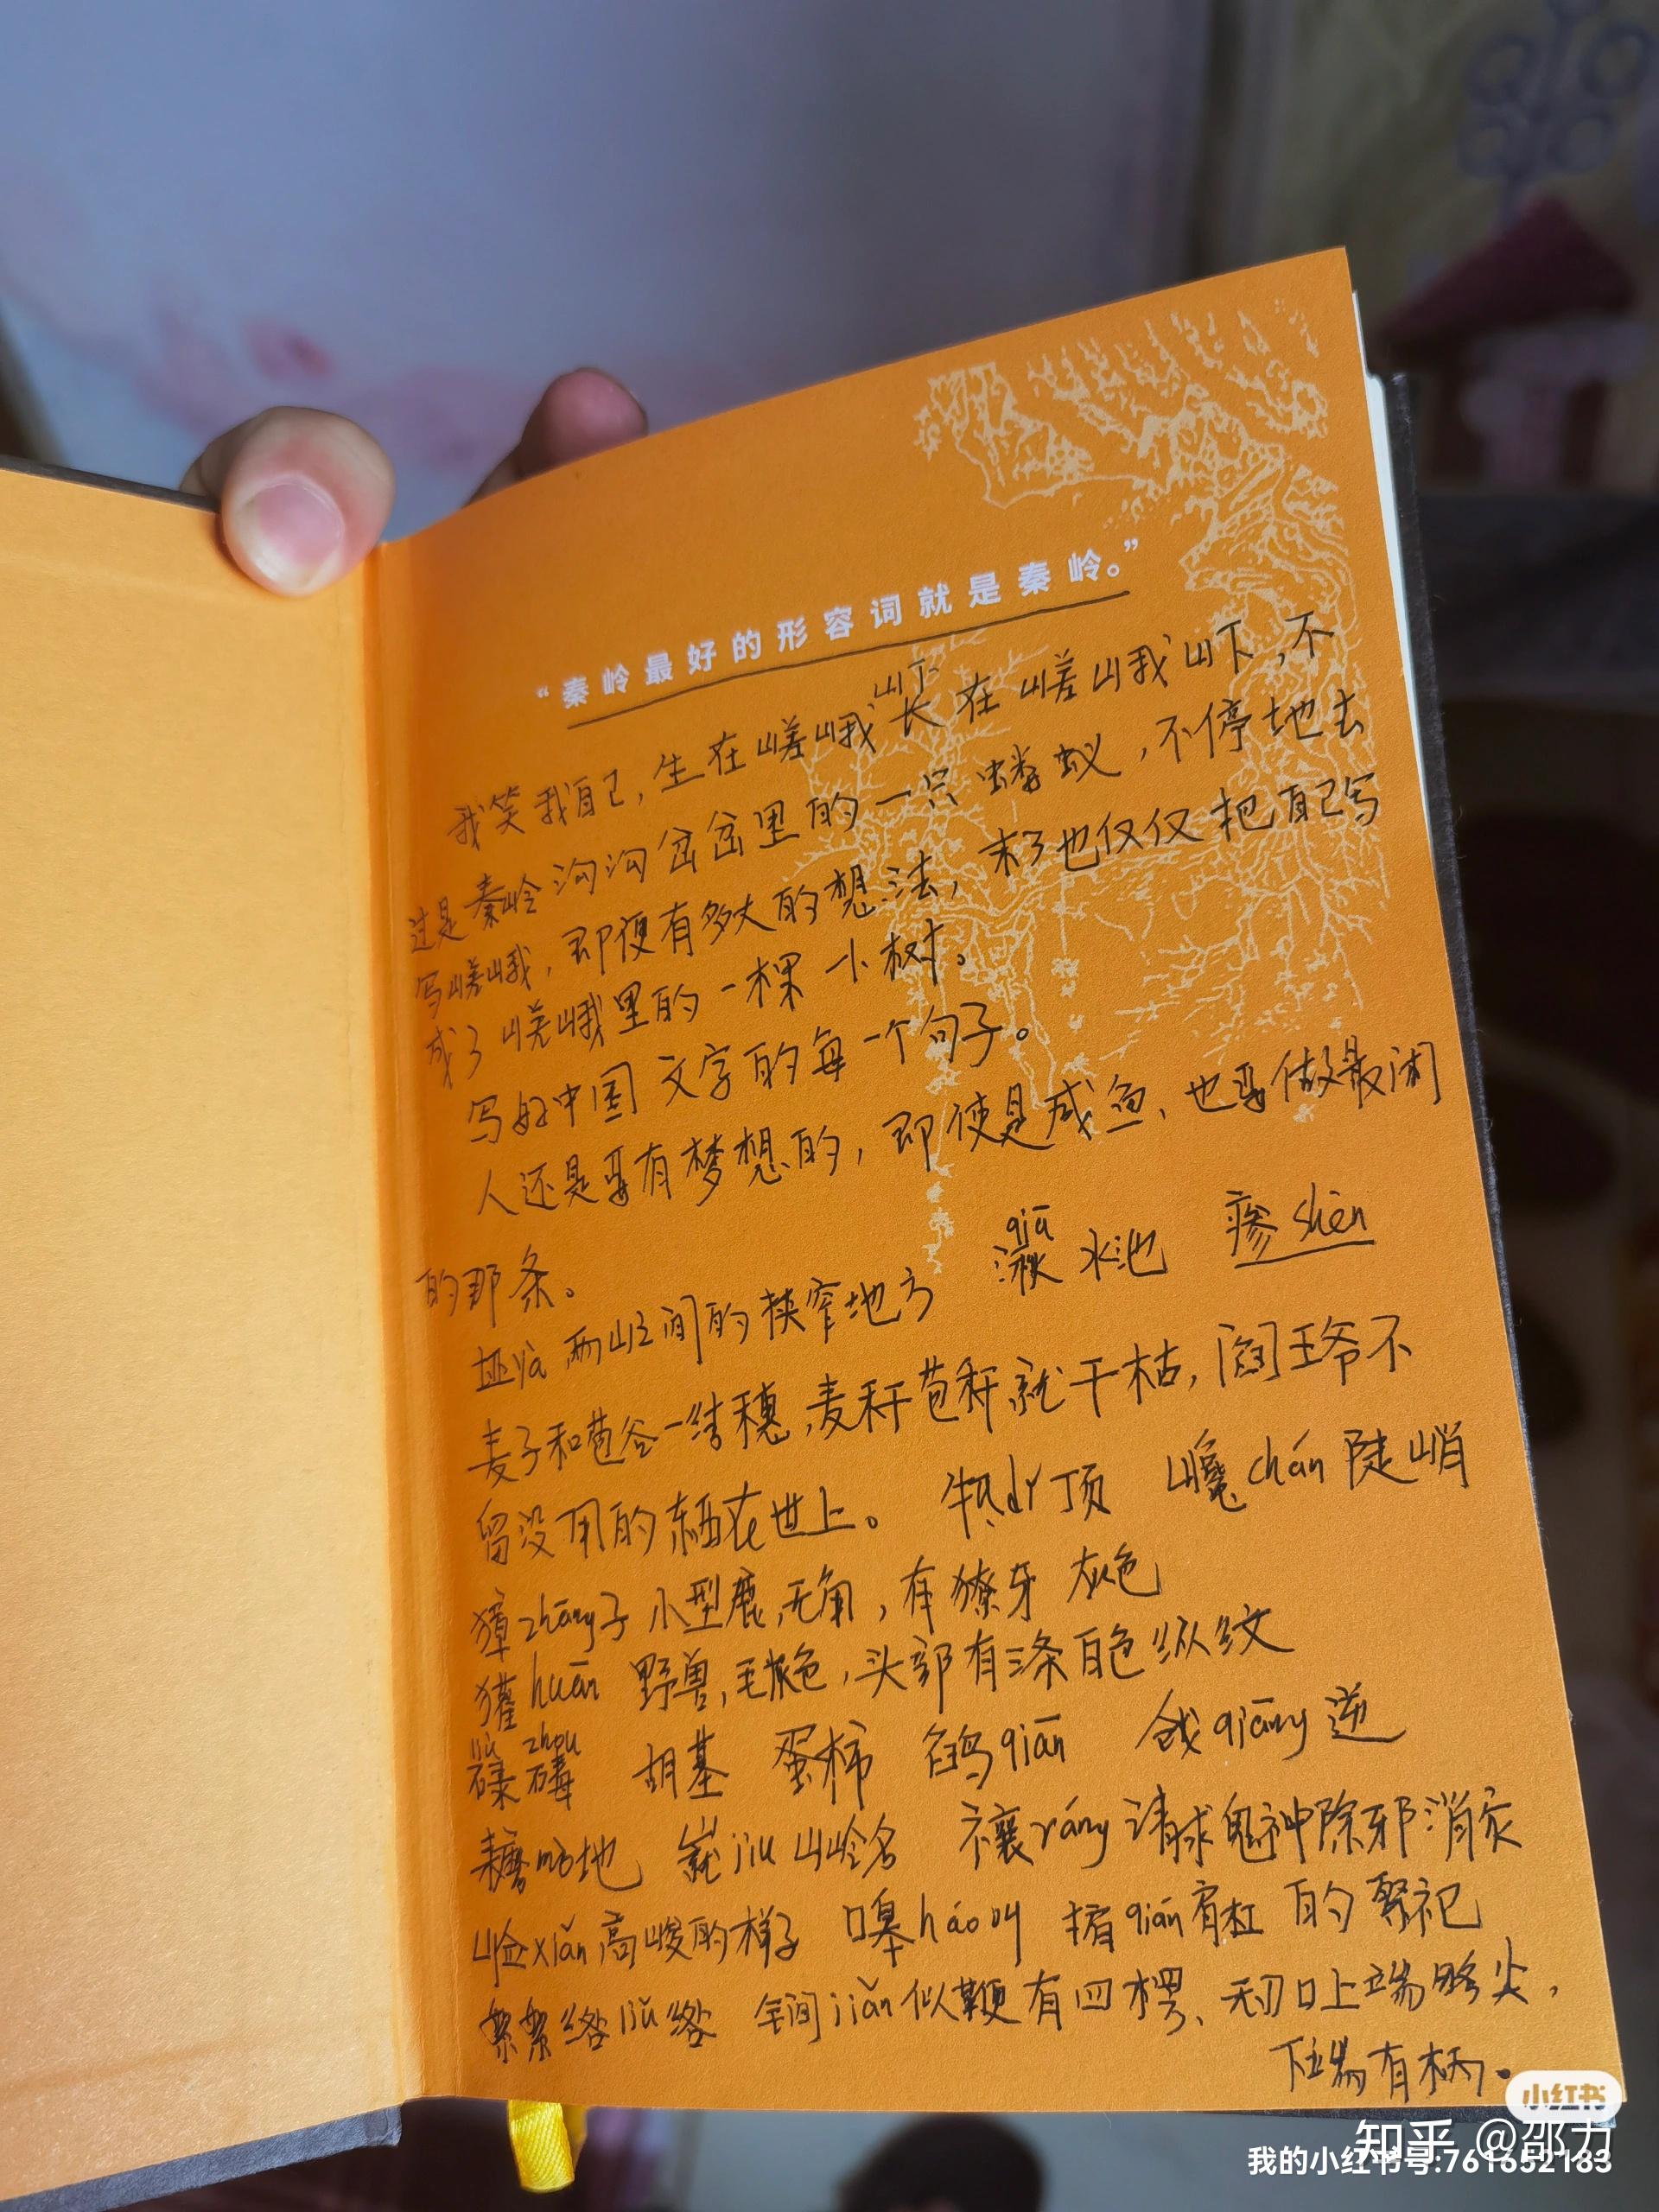 “秦岭最好的形容词就是秦岭。”
山下
我笑我自己,生在嵯峨长在嵯峨山下,不
过是秦岭沟沟岔岔里的一只蝼蚁,不停地去
写嵯峨,即便有多大的想法,末了也仅仅把自己写
成了嵯峨里的一棵小树。
写好中国文字的每一个句子。
人还是要有梦想的,即使是咸鱼、也要做最闲
的那条。
垭yà两山之间的狭窄地方 qiū 湫水池 瘆shèn
麦子和苞谷一结穗,麦秆苞秆就干枯,阎王爷不
留没用的东西在世上。 dǐ顶 巉chán陡峭
獐zhāng子 小型鹿,无角,有獠牙 灰色
獾huān 野兽,毛灰色,头部有三条白色纵纹
liù zhou
碌碡 胡基 蛋柿 鹐qiān 戗qiāng逆
耱mò地 jiu山岭名 禳ráng请求鬼神除邪消灾
崄xiǎn高峻的样子 嗥háo叫 掮qián肩杠的 祭祀
絮絮绺liǔ绺 锏jiǎn似鞭有四棱、无刃口上端略尖,
下端有柄。
小红书
知乎 @邵力
我的小红书号:761652183